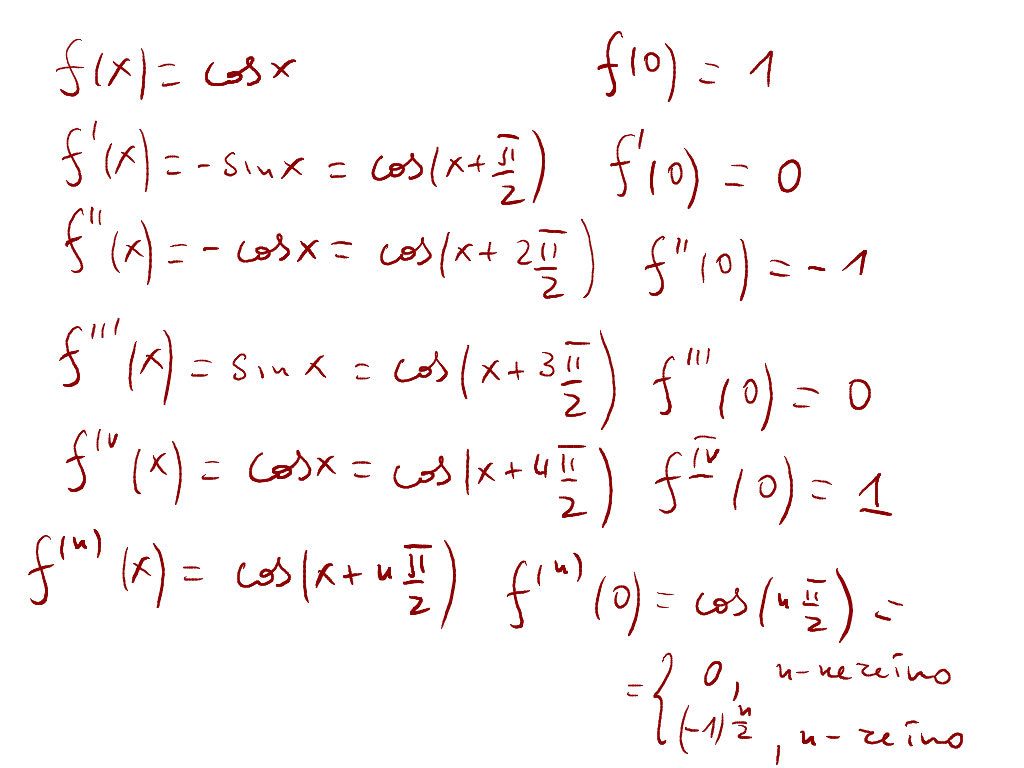 f(x) = cos x f(0) = 1
f'(x) = - sin x = cos(x + π/2) f'(0) = 0
f''(x) = - cos x = cos(x + 2 π/2) f''(0) = - 1
f'''(x) = sin x = cos(x + 3 π/2) f'''(0) = 0
f^IV(x) = cos x = cos(x + 4 π/2) f^IV(0) = 1
f^(n)(x) = cos(x + n π/2) f^(n)(0) = cos(n π/2) =
= { 0, n - neceīno
(-1)^(n/2), n - ceīno